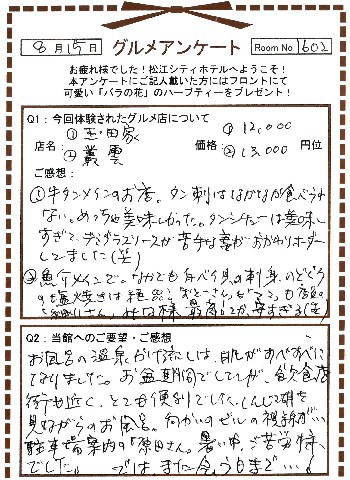 8月15日 グルメアンケート Room No 1602
お疲れ様でした！松江シティホテルへようこそ！
本アンケートにご記入戴いた方にはフロントにて
可愛い「バラの花」のハーブティーをプレゼント！
Q1：今回体験されたグルメ店について
店名：①玉田家 ②叢雲 価格：①12,000 ②13,000 円位
ご感想：
①牛タンメインのお店。タン刺はなかなか食べられ
ない。めっちゃ美味しかった。タンシチューは美味し
すぎて、デミグラスソースが苦手な妻がおかわりオーダー
してました(笑)
②魚介メインで。なかでも白べイ貝の刺身、のどぐろ
の塩焼きは絶品。
Q2：当館へのご要望・ご感想
お風呂の温泉かけ流しは、肌がすべすべに
なりました。お盆期間でしたが、飲食店
街も近く、とても便利でした。しんじ湖を
見ながらのお風呂。向かいのビルの視線が…
駐車場案内の「原田さん。暑い中、ご苦労様
でした。では、また会う日まで…！